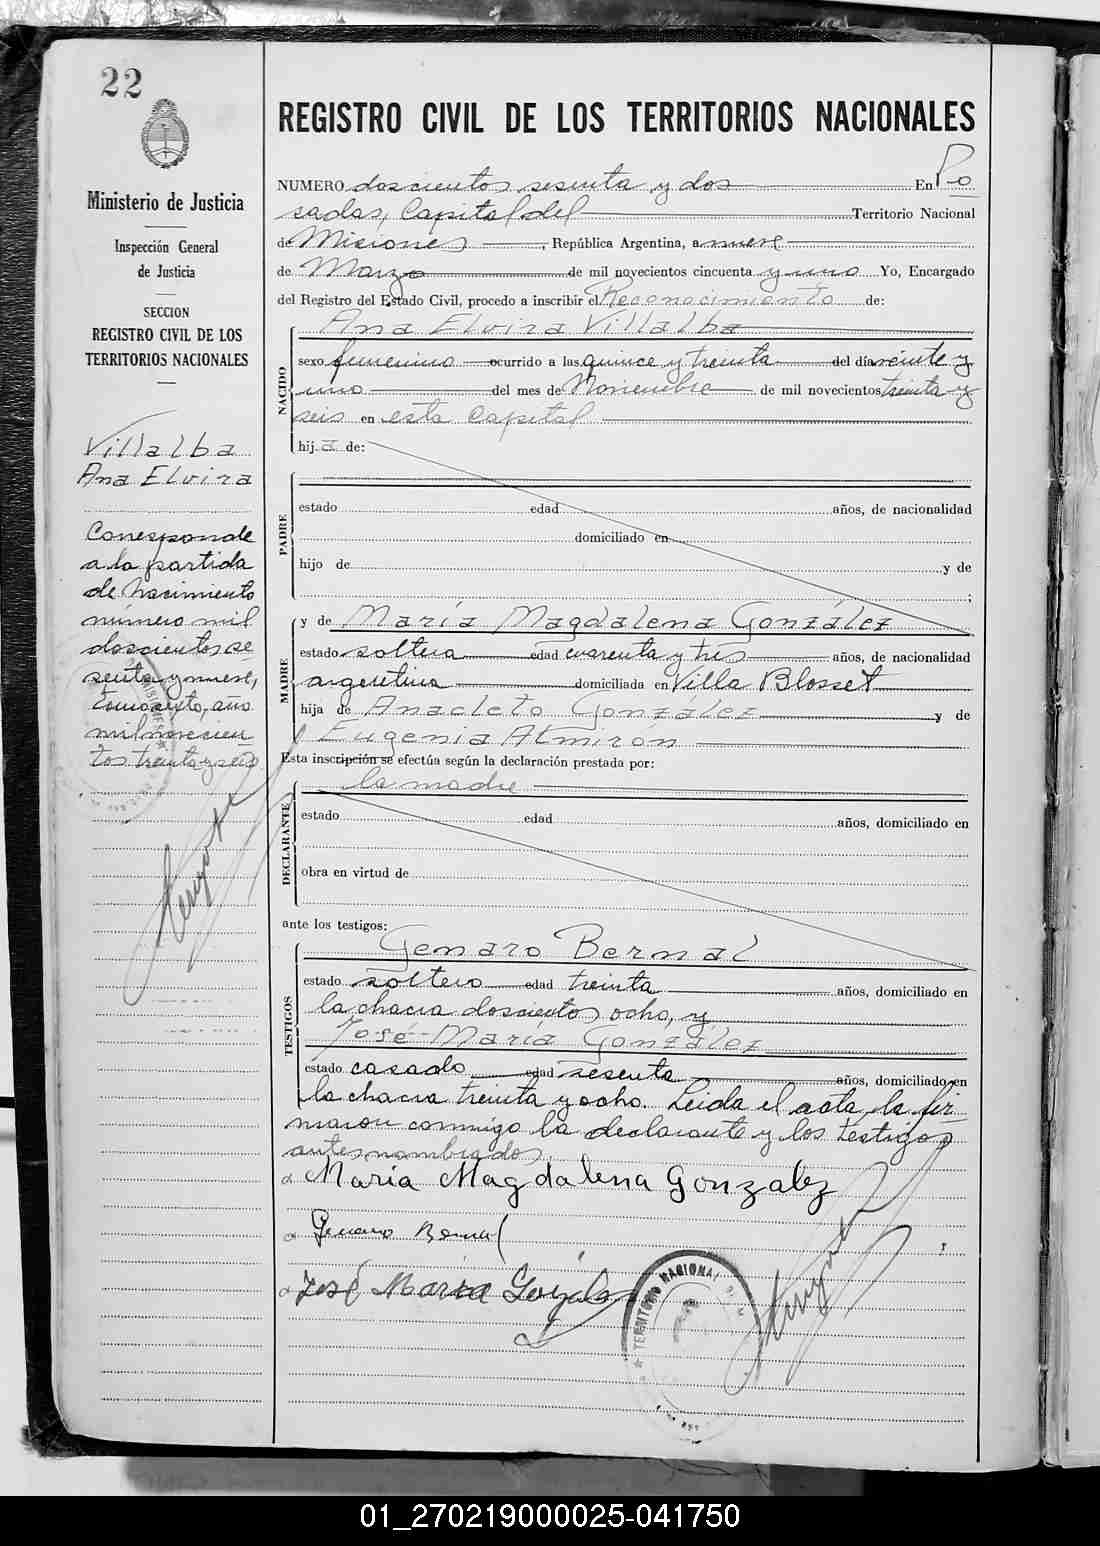 22
Ministerio de Justicia
Inspección General
de Justicia
SECCION
REGISTRO CIVIL DE LOS
TERRITORIOS NACIONALES
Villalba
Ana Elvira
Corresponde
a la partida
de Nacimiento
número mil
doscientos se-
senta y nueve,
tomo sexto, año
mil novecien
tos treinta y seis
REGISTRO CIVIL DE LOS TERRITORIOS NACIONALES
NUMERO doscientos sesenta y dos En Po
sadas, Capital del Territorio Nacional
de Misiones, República Argentina, a nueve
de Marzo de mil novecientos cincuenta y uno Yo, Encargado
del Registro del Estado Civil, procedo a inscribir el Reconocimiento de:
Ana Elvira Villalba
NACIDO
sexo femenino ocurrido a las quince y treinta del día veinte y
uno del mes de Noviembre de mil novecientos treinta y
seis en esta Capital
hija de:
PADRE
estado edad años, de nacionalidad
domiciliado en
hijo de y de
;
y de María Magdalena González
MADRE
estado soltera edad cuarenta y tres años, de nacionalidad
argentina domiciliada en Villa Blosset
hija de Anacleto González y de
Eugenia Almirón
Esta inscripción se efectúa según la declaración prestada por:
la madre
DECLARANTE
estado edad años, domiciliado en
obra en virtud de
ante los testigos:
Genaro Bernal
TESTIGOS
estado soltero edad treinta años, domiciliado en
la chacra doscientos ocho, y
José María González
estado casado edad sesenta años, domiciliado en
la chacra treinta y ocho. Leida el acta, la fir
maron conmigo la declarante y los testigos
antes nombrados.
María Magdalena Gonzalez
Genaro Bernal
José María Gonzalez
TERRITORIO NACIONAL
01_270219000025-041750